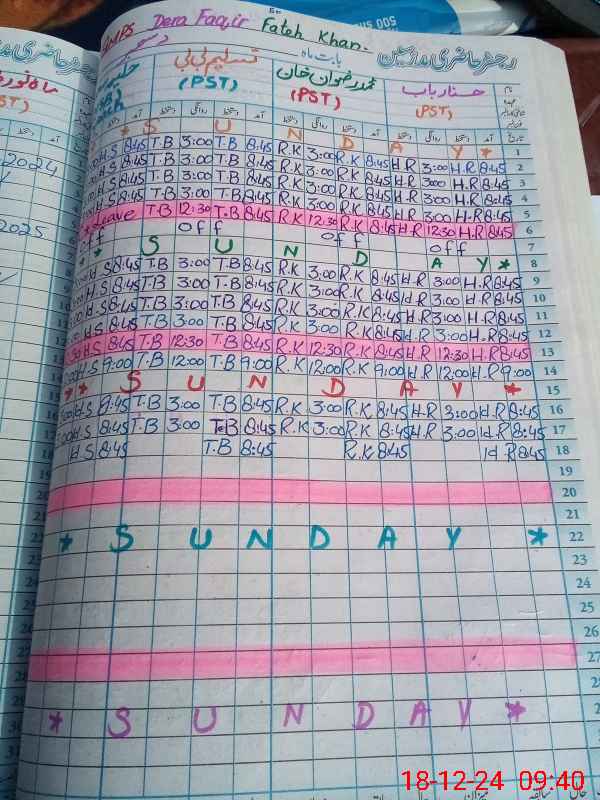 GMPS Dera Faqir Fateh Khan.
500 SHE
رجسٹر حاضری مدرسین
بابت ماہ
رجسٹر حاضری مدر
حسنار باب
(PST)
محمد رضوان خان
(PST)
تسلیم بی بی
(PST)
ماہ نور
آمد دستخط روانگی دستخط آمد دستخط روانگی دستخط آمد دستخط روانگی دستخط آمد
* S U N D A Y * 1
H.S 8:45 T.B 3:00 T.B 8:45 R.K 3:00 R.K 8:45 H.R 3:00 H.R 8:45 2
H.S 8:45 T.B 3:00 T.B 8:45 R.K 3:00 R.K 8:45 H.R 3:00 H.R 8:45 3
H.S 8:45 T.B 3:00 T.B 8:45 R.K 3:00 R.K 8:45 H.R 3:00 H.R 8:45 4
H.S 8:45 T.B 3:00 T.B 8:45 R.K 3:00 R.K 8:45 H.R 3:00 H.R 8:45 5
Leave T.B 12:30 T.B 8:45 R.K 12:30 R.K 8:45 H.R 12:30 H.R 8:45 6
off off off off 7
* S U N D A Y * 8
H.S 8:45 T.B 3:00 T.B 8:45 R.K 3:00 R.K 8:45 H.R 3:00 H.R 8:45 9
H.S 8:45 T.B 3:00 T.B 8:45 R.K 3:00 R.K 8:45 H.R 3:00 H.R 8:45 10
H.S 8:45 T.B 3:00 T.B 8:45 R.K 3:00 R.K 8:45 H.R 3:00 H.R 8:45 11
H.S 8:45 T.B 3:00 T.B 8:45 R.K 3:00 R.K 8:45 H.R 3:00 H.R 8:45 12
H.S 8:45 T.B 12:30 T.B 8:45 R.K 12:30 R.K 8:45 H.R 12:30 H.R 8:45 13
H.S 9:00 T.B 12:00 T.B 9:00 R.K 12:00 R.K 9:00 H.R 12:00 H.R 9:00 14
* * S U N D A Y * 15
3:00 H.S 8:45 T.B 3:00 T.B 8:45 R.K 3:00 R.K 8:45 H.R 3:00 H.R 8:45 16
3:00 H.S 8:45 T.B 3:00 T.B 8:45 R.K 3:00 R.K 8:45 H.R 3:00 H.R 8:45 17
H.S 8:45 T.B 8:45 R.K 8:45 H.R 8:45 18
19
20
21
* S U N D A Y * 22
23
24
25
26
27
28
* S U N D A Y * 29
30
31
2024
2025
18-12-24 09:40